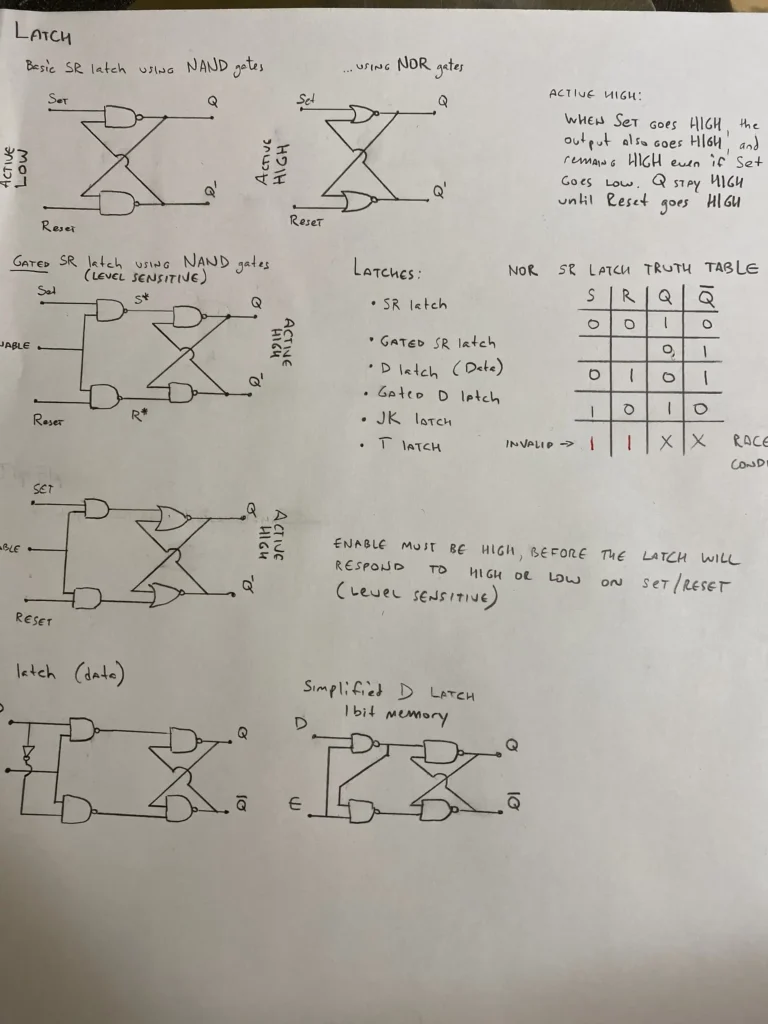 LATCH
Basic SR latch using NAND gates
...using NOR gates
Set
Q
ACTIVE LOW
Q'
Reset
Set
Q
ACTIVE HIGH
Q'
Reset
ACTIVE HIGH:
WHEN Set goes HIGH, the
output also goes HIGH, and
remains HIGH even if Set
Goes Low. Q STAY HIGH
until Reset goes HIGH
GATED SR latch using NAND gates
(LEVEL SENSITIVE)
Set
S*
Q
ACTIVE HIGH
Q'
Reset
R*
LATCHES:
• SR latch
• GATED SR latch
• D latch (Data)
• Gated D latch
• JK latch
• T LATCH
NOR SR LATCH TRUTH TABLE
S R Q Q̅
0 0 1 0
0, 1
0 1 0 1
1 0 1 0
INVALID → 1 1 X X RACE
SET
Q
ACTIVE HIGH
Q'
RESET
ENABLE MUST BE HIGH, BEFORE THE LATCH WILL
RESPOND TO HIGH OR LOW ON SET/RESET
(LEVEL SENSITIVE)
latch (data)
Q
Q̅
Simplified D LATCH
1bit memory
D
Q
E
Q̅